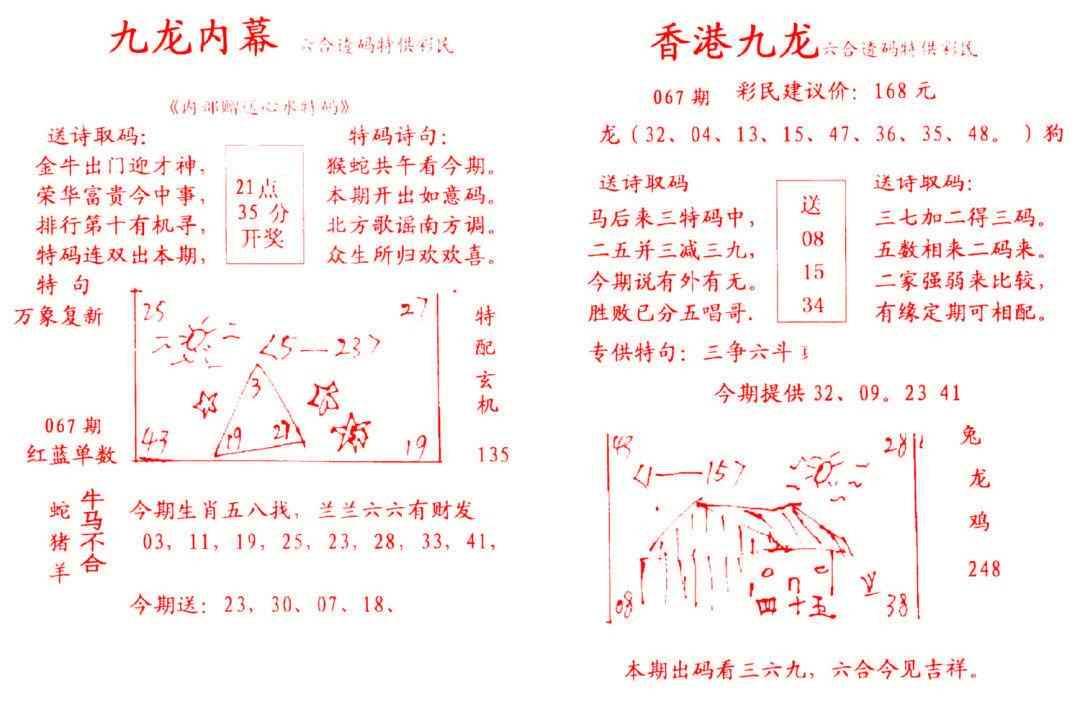 九龙内幕 六合透码特供彩民
《内部赠送心水特码》
送诗取码:
金牛出门迎才神,
荣华富贵今中事,
排行第十有机寻,
特码连双出本期,
特 句
万象复新
21点
35 分
开奖
特码诗句:
猴蛇共午看今期。
本期开出如意码。
北方歌谣南方调。
众生所归欢欢喜。
25
27
<5—23>
3
19
21
43
19
特配玄机
135
067 期
红蓝单数
蛇猪羊
牛马不合
今期生肖五八找, 兰兰六六有财发
03, 11, 19, 25, 23, 28, 33, 41,
今期送: 23, 30、07、18、
香港九龙 六合透码特供彩民
067 期 彩民建议价: 168 元
龙 (32、04、13、15、47、36、35、48。) 狗
送诗取码
马后来三特码中,
二五并三减三九,
今期说有外有无。
胜败已分五唱哥.
送
08
15
34
送诗取码:
三七加二得三码。
五数相来二码来。
二家强弱来比较,
有缘定期可相配。
专供特句: 三争六斗
今期提供 32、09。23 41
43
28
<1—15>
08
四十五
38
兔
龙
鸡
248
本期出码看三六九, 六合今见吉祥。